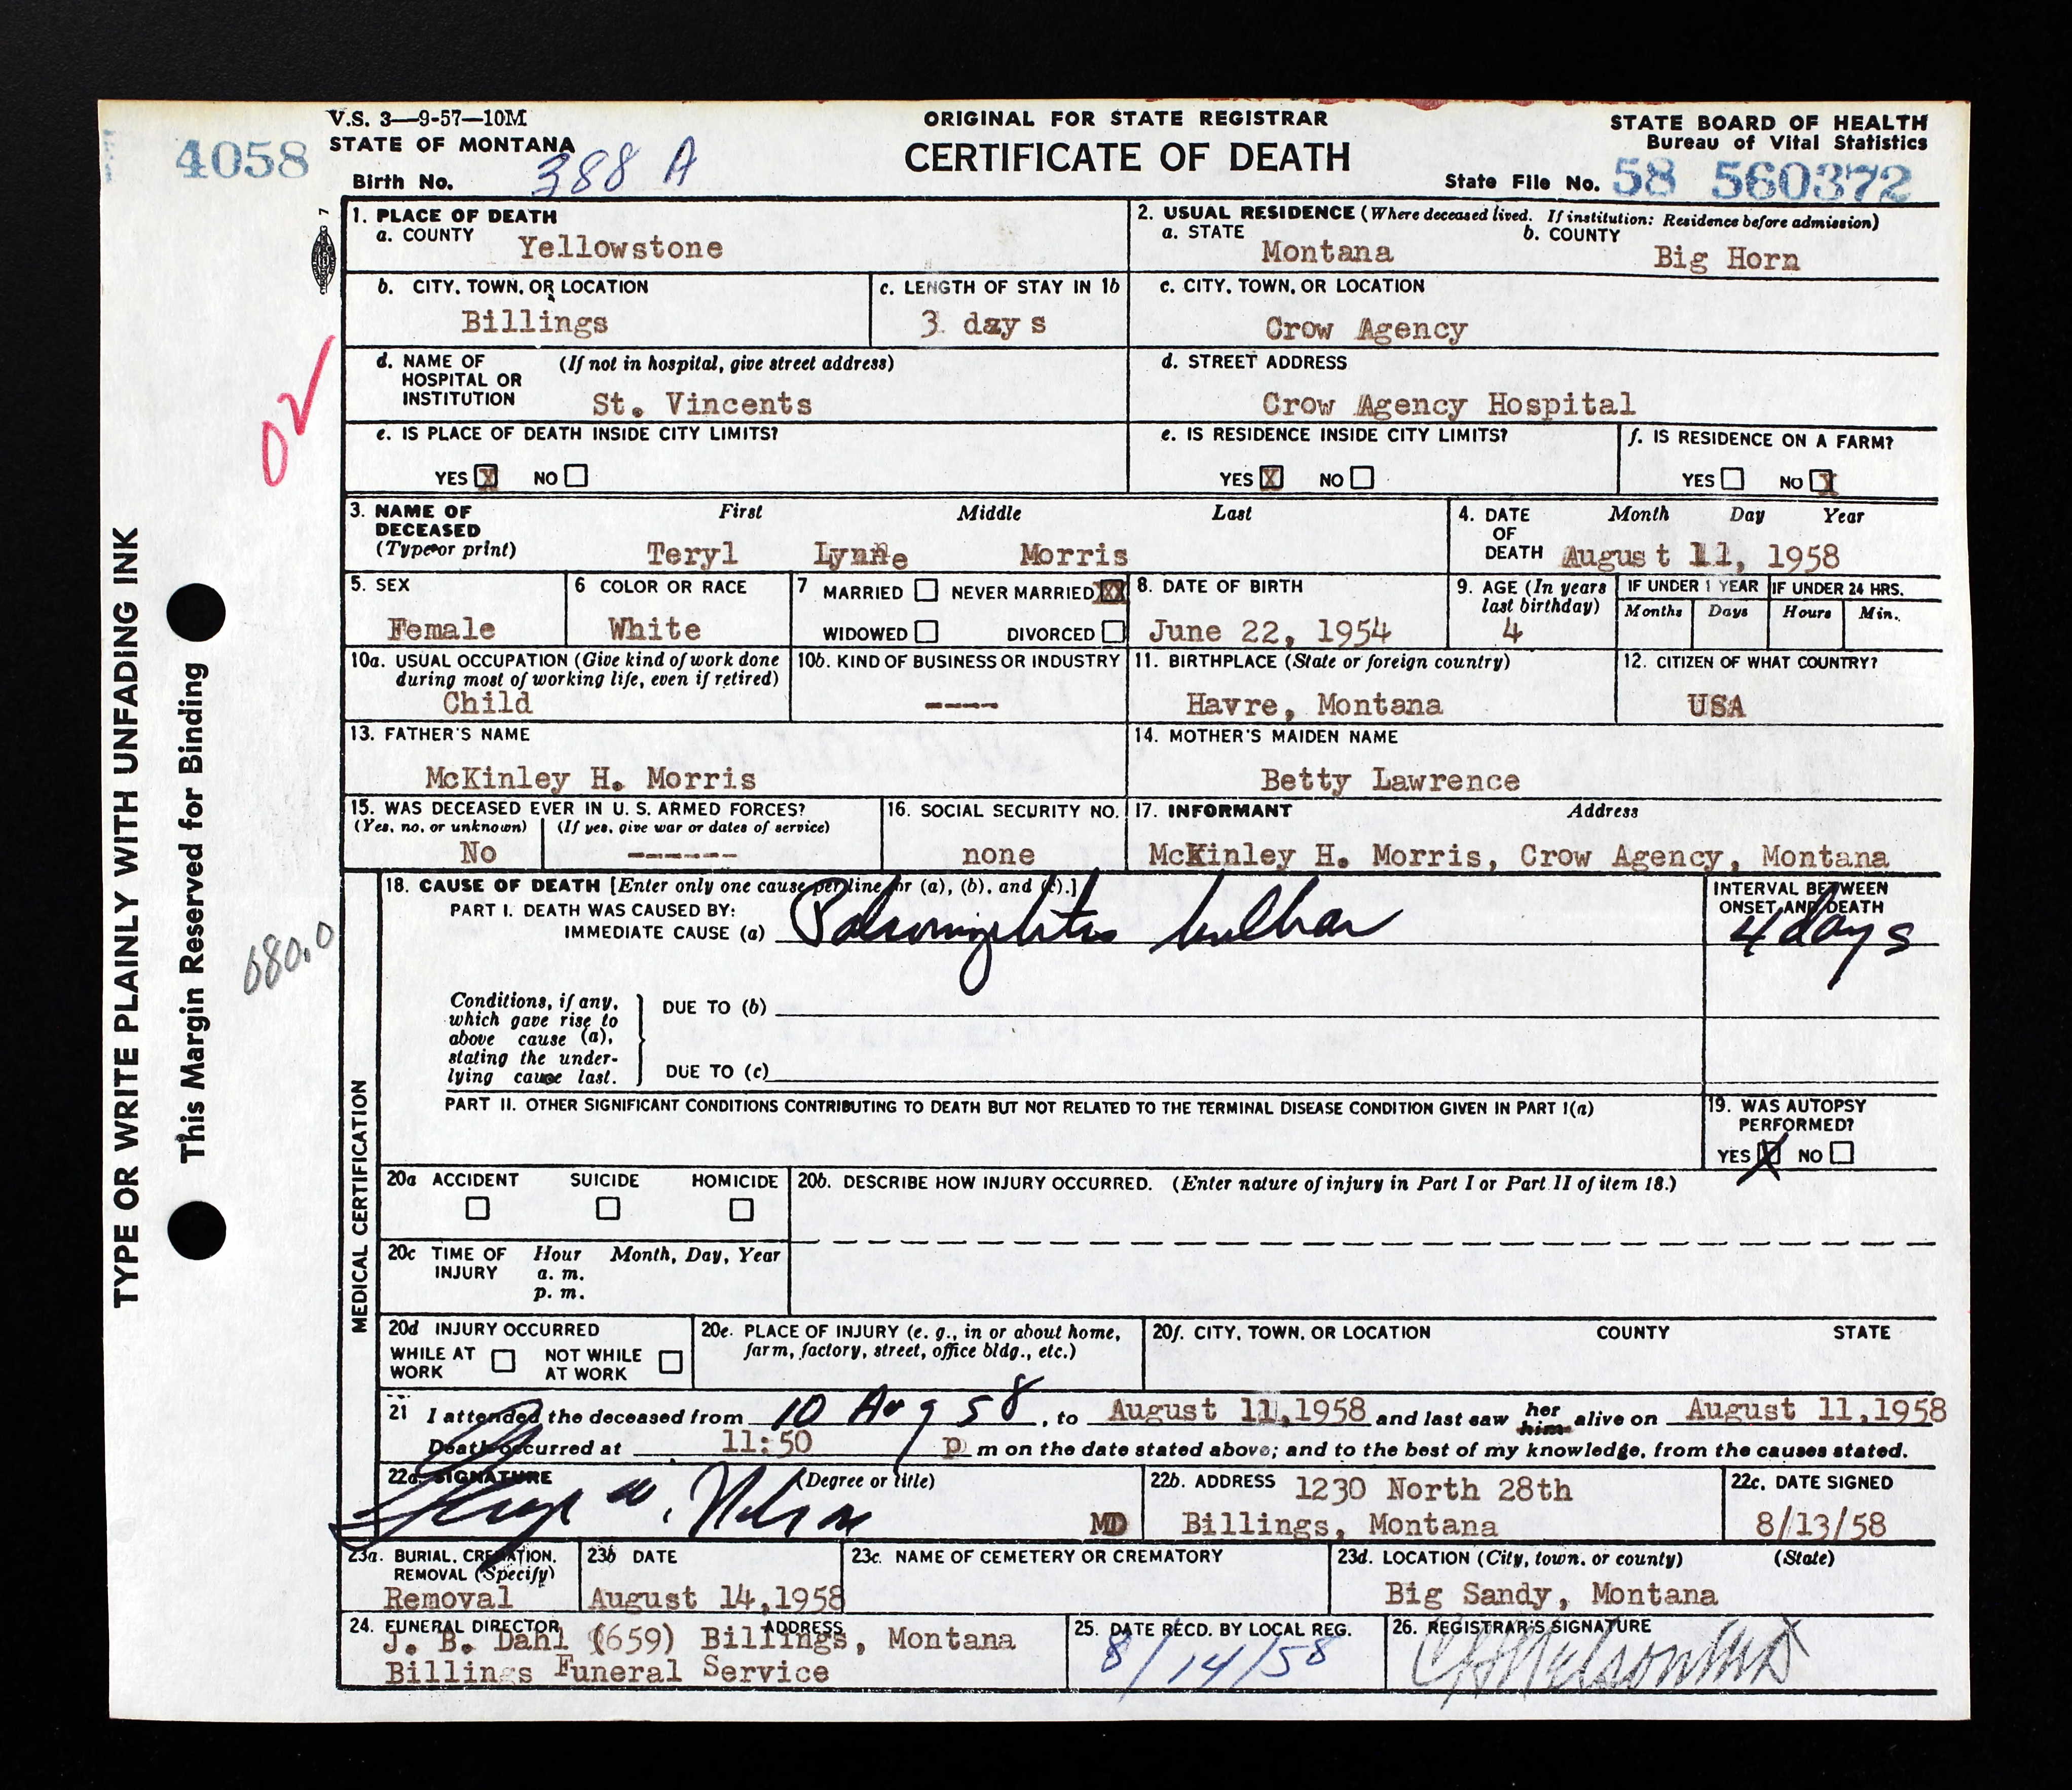 V.S. 3—9-57—10M
ORIGINAL FOR STATE REGISTRAR
STATE BOARD OF HEALTH
4058
STATE OF MONTANA
CERTIFICATE OF DEATH
Bureau of Vital Statistics
Birth No. 388 A
State File No. 58 560372
1. PLACE OF DEATH
a. COUNTY Yellowstone
2. USUAL RESIDENCE (Where deceased lived. If institution: Residence before admission)
a. STATE Montana b. COUNTY Big Horn
b. CITY, TOWN, OR LOCATION Billings
c. LENGTH OF STAY IN 1b 3 days
c. CITY, TOWN, OR LOCATION Crow Agency
d. NAME OF HOSPITAL OR INSTITUTION (If not in hospital, give street address) St. Vincents
d. STREET ADDRESS Crow Agency Hospital
e. IS PLACE OF DEATH INSIDE CITY LIMITS?
YES X NO
e. IS RESIDENCE INSIDE CITY LIMITS?
YES X NO
f. IS RESIDENCE ON A FARM?
YES NO X
02
3. NAME OF DECEASED (Type or print)
First Middle Last
Teryl Lynne Morris
4. DATE OF DEATH
Month Day Year
August 11, 1958
5. SEX
Female
6 COLOR OR RACE
White
7 MARRIED NEVER MARRIED XX
WIDOWED DIVORCED
8. DATE OF BIRTH
June 22, 1954
9. AGE (In years last birthday)
4
IF UNDER 1 YEAR
Months Days
IF UNDER 24 HRS.
Hours Min.
10a. USUAL OCCUPATION (Give kind of work done during most of working life, even if retired)
Child
10b. KIND OF BUSINESS OR INDUSTRY
----
11. BIRTHPLACE (State or foreign country)
Havre, Montana
12. CITIZEN OF WHAT COUNTRY?
USA
13. FATHER'S NAME
McKinley H. Morris
14. MOTHER'S MAIDEN NAME
Betty Lawrence
15. WAS DECEASED EVER IN U. S. ARMED FORCES?
(Yes, no, or unknown) (If yes, give war or dates of service)
No ------
16. SOCIAL SECURITY NO.
none
17. INFORMANT Address
McKinley H. Morris, Crow Agency, Montana
MEDICAL CERTIFICATION
18. CAUSE OF DEATH [Enter only one cause per line for (a), (b), and (c).]
PART I. DEATH WAS CAUSED BY:
IMMEDIATE CAUSE (a) Poliomyelitis bulbar
INTERVAL BETWEEN ONSET AND DEATH
4 days
080.0
Conditions, if any, which gave rise to above cause (a), stating the underlying cause last.
DUE TO (b)
DUE TO (c)
PART II. OTHER SIGNIFICANT CONDITIONS CONTRIBUTING TO DEATH BUT NOT RELATED TO THE TERMINAL DISEASE CONDITION GIVEN IN PART I(a)
19. WAS AUTOPSY PERFORMED?
YES X NO
20a ACCIDENT SUICIDE HOMICIDE
20b. DESCRIBE HOW INJURY OCCURRED. (Enter nature of injury in Part I or Part II of item 18.)
20c TIME OF INJURY Hour Month, Day, Year
a. m.
p. m.
20d INJURY OCCURRED
WHILE AT WORK NOT WHILE AT WORK
20e. PLACE OF INJURY (e. g., in or about home, farm, factory, street, office bldg., etc.)
20f. CITY, TOWN, OR LOCATION COUNTY STATE
21 I attended the deceased from 10 Aug 58, to August 11,1958 and last saw her him alive on August 11,1958
Death occurred at 11:50 p m on the date stated above; and to the best of my knowledge, from the causes stated.
22a. SIGNATURE (Degree or title)
W. Nelson MD
22b. ADDRESS 1230 North 28th
Billings, Montana
22c. DATE SIGNED
8/13/58
23a. BURIAL, CREMATION, REMOVAL (Specify)
Removal
23b DATE
August 14,1958
23c. NAME OF CEMETERY OR CREMATORY
23d. LOCATION (City, town, or county) (State)
Big Sandy, Montana
24. FUNERAL DIRECTOR ADDRESS
J. B. Dahl (659) Billings, Montana
Billings Funeral Service
25. DATE RECD. BY LOCAL REG.
8/14/58
26. REGISTRAR'S SIGNATURE
Nelson
TYPE OR WRITE PLAINLY WITH UNFADING INK
This Margin Reserved for Binding